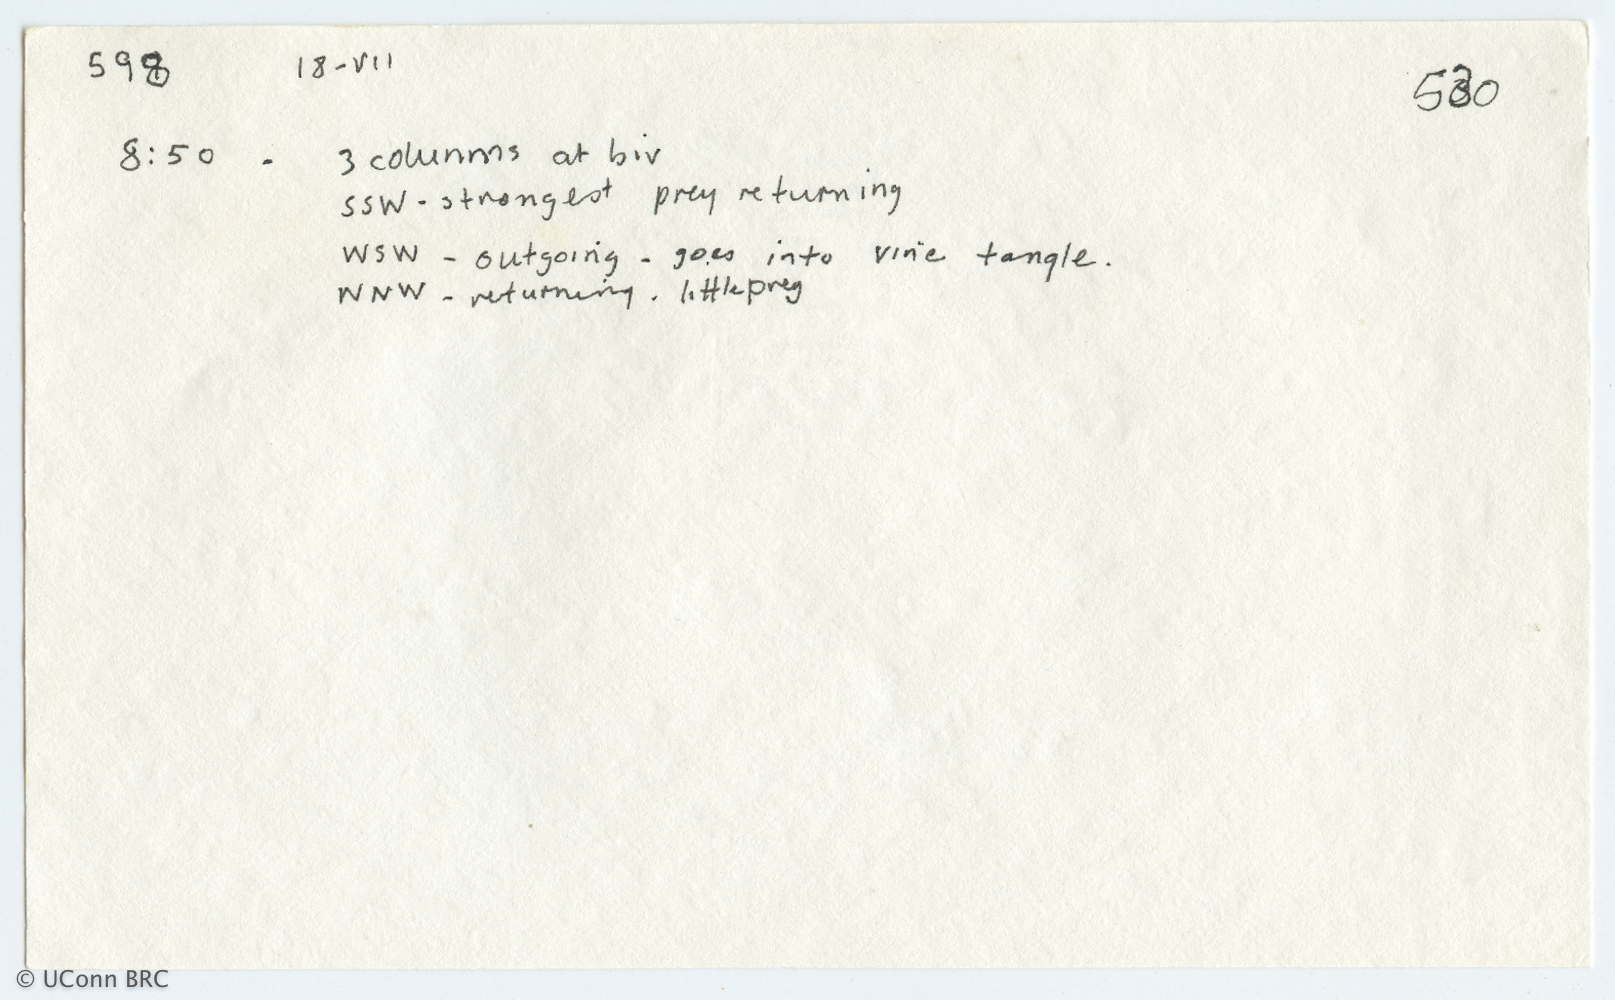 598 18-VII 530
8:50 - 3 columns at biv
SSW - strongest prey returning
WSW - outgoing - goes into vine tangle.
WNW - returning. little prey
© UConn BRC